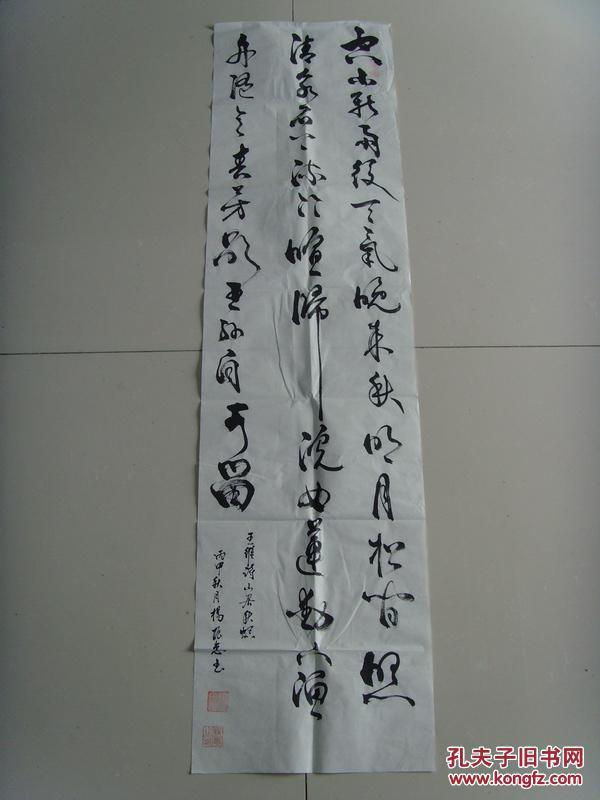 空山新雨後天氣晚来秋明月松間照
清泉石上流竹喧歸浣女蓮動下漁
舟随意春芳歇王孫自可留
王維詩山居秋暝
丙申秋月楊書
孔夫子旧书网
www.kongfz.com